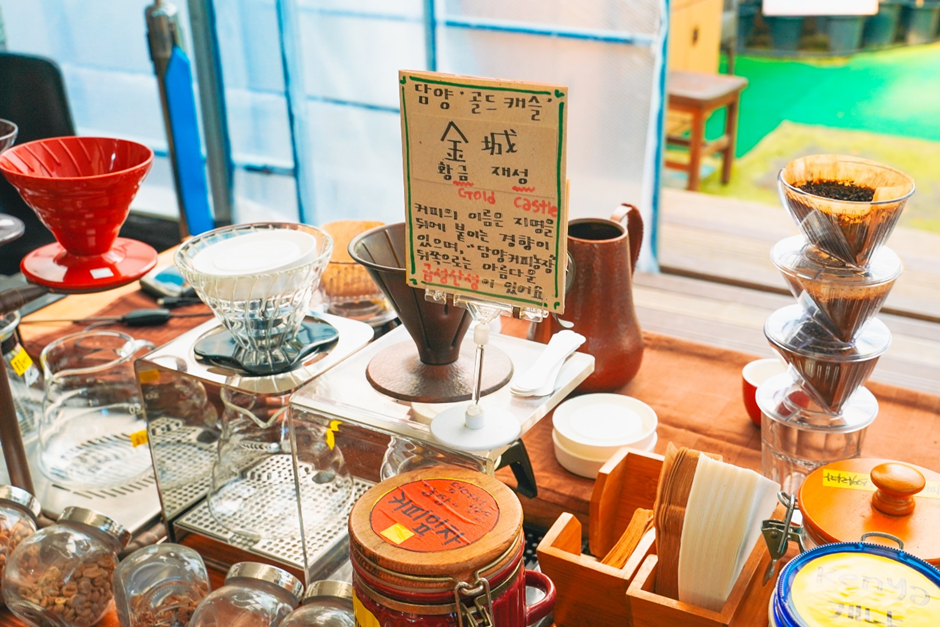 담양 '골드 캐슬'
金 城
황금 재성
Gold Castle
커피의 이름은 지명을
뒤에 붙이는 경향이
있으며, '담양커피농장'
뒤쪽으로는 아름다운
금성산성이 있어요
커피잔
Kenya